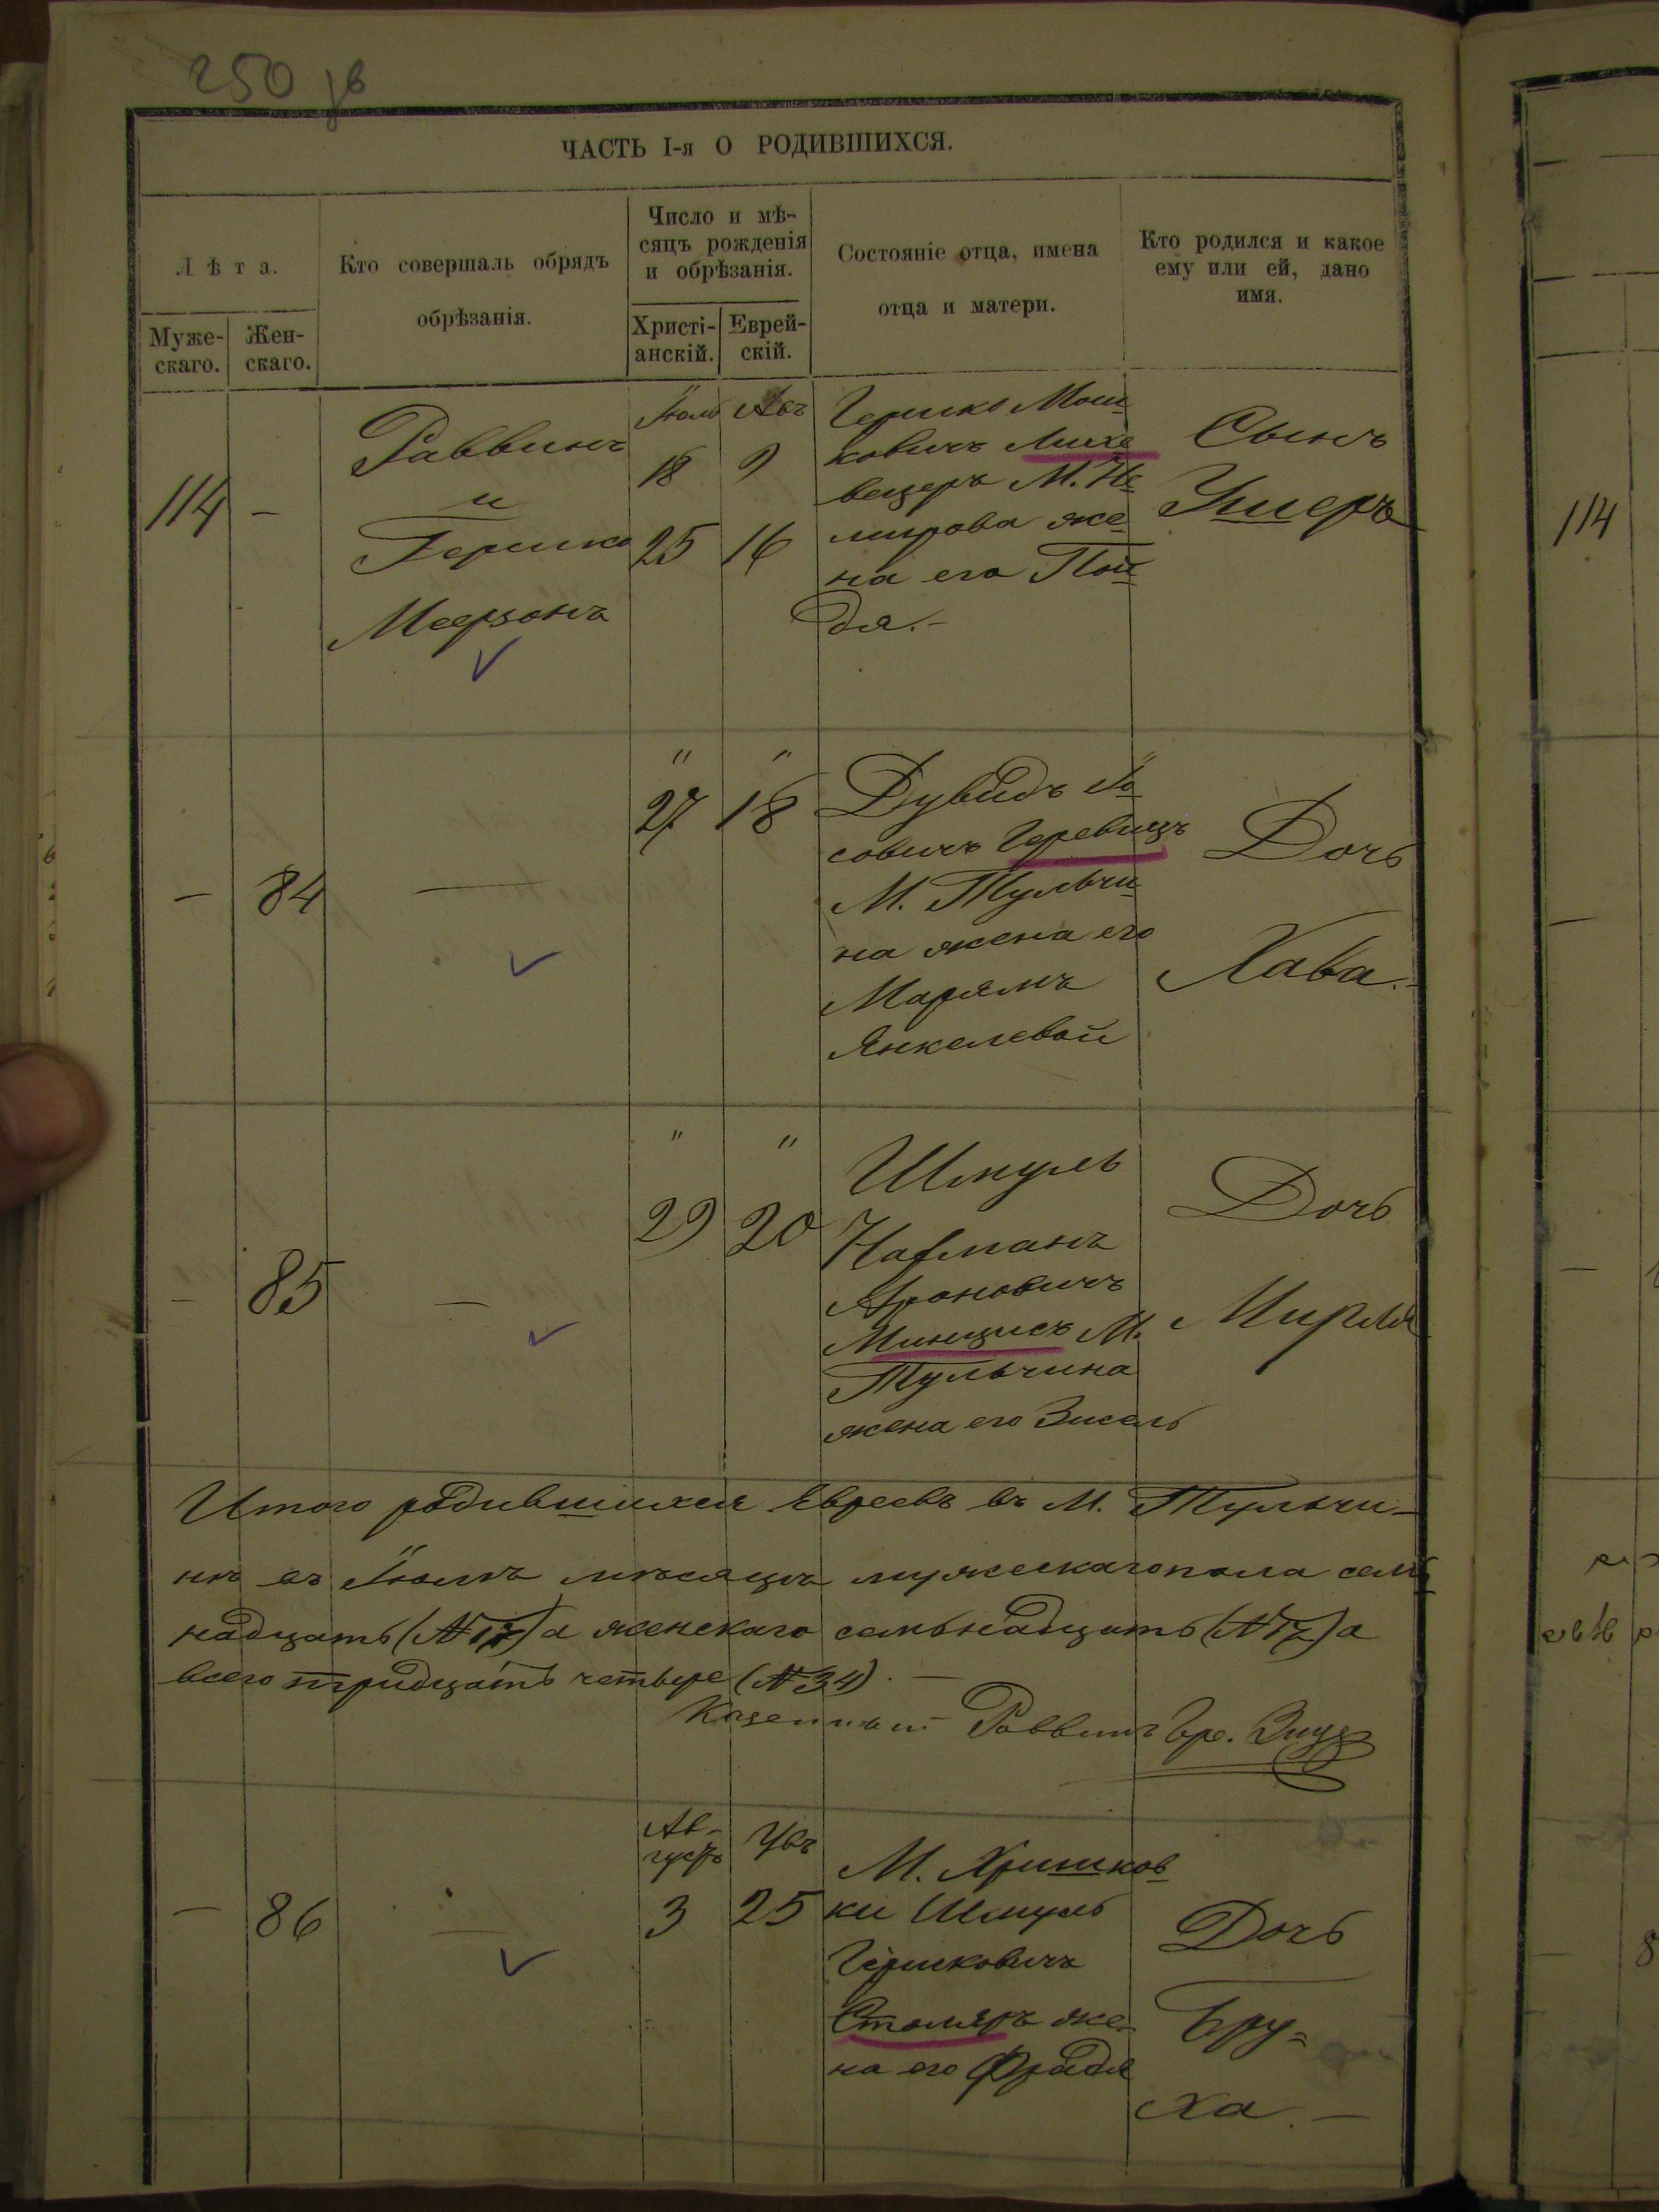 250 зв
ЧАСТЬ I-я О РОДИВШИХСЯ.
Лѣта.
Муже-
скаго.
Жен-
скаго.
Кто совершалъ обрядъ
обрѣзанія.
Число и мѣ-
сяцъ рожденія
и обрѣзанія.
Христі-
анскій.
Еврей-
скій.
Состояніе отца, имена
отца и матери.
Кто родился и какое
ему или ей, дано
имя.
114
—
Раввинъ
и
Гершко
Меерзонъ
Іюль
18
25
Авъ
9
16
Гершко Мош-
ковичъ
М. Не
мирова же
на его Пой
дя.—
Сынъ
Ушеръ
—
84
—
"
27
"
18
Дувидъ Іо
совичъ Геревицъ
М. Тульчи-
на жена его
Марямъ
Янкелевой
Дочь
Хава.
—
85
—
"
29
"
20
Шмуль
Нафманъ
Ароновичъ
Минцисъ М.
Тульчина
жена его Зисель
Дочь
Мирля
Итого родившихся Евреевъ въ М. Тульчи-
нѣ въ Іюлѣ мѣсяцѣ мужескаго пола семь
надцать (№17) а женскаго семьнадцать (№17) а
всего тридцать четыре (№34). —
Казенный Раввинъ
—
86
—
Ав-
густъ
3
Увъ
25
М. Кришков
ки Шмуль
Гершковичъ
Столяръ же-
на его Фрадя
Дочь
Бру-
ха. —
114